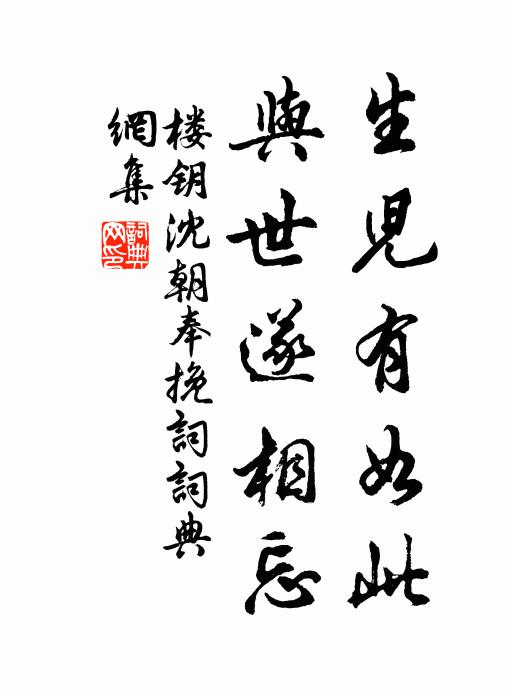 生兒有如此
與世遂相忘
楼钥沈朝奉挽詞詞典
網集
詞典網印